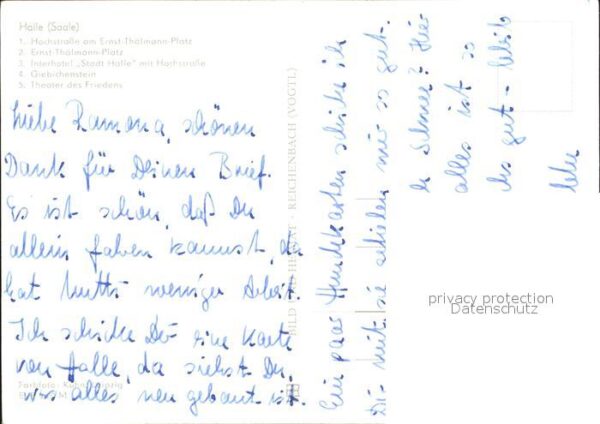 Halle (Saale)
1. Hochstraße am Ernst-Thälmann-Platz
2. Ernst-Thälmann-Platz
3. Interhotel „Stadt Halle" mit Hochstraße
4. Giebichenstein
5. Theater des Friedens
Liebe Ramona, schönen
Dank für Deinen Brief.
Es ist schön, daß Du
allein fahren kannst, da
hat Mutti weniger Arbeit.
Ich schicke Dir eine Karte
von Halle, da siehst Du,
was alles neu gebaut ist.
Ein paar Hundekarten schicke ich
Dir mit, sie gefielen mir so gut.
Schnee? Hier
alles ist so
gut -
BILD UND HEIMAT · REICHENBACH (VOGTL)
Farbfoto:
privacy protection
Datenschutz